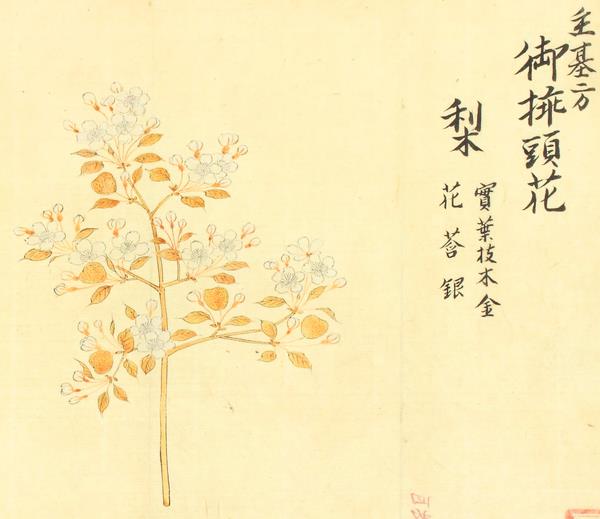 主基方
御揷頭花
梨
實葉枝木金
花莟銀